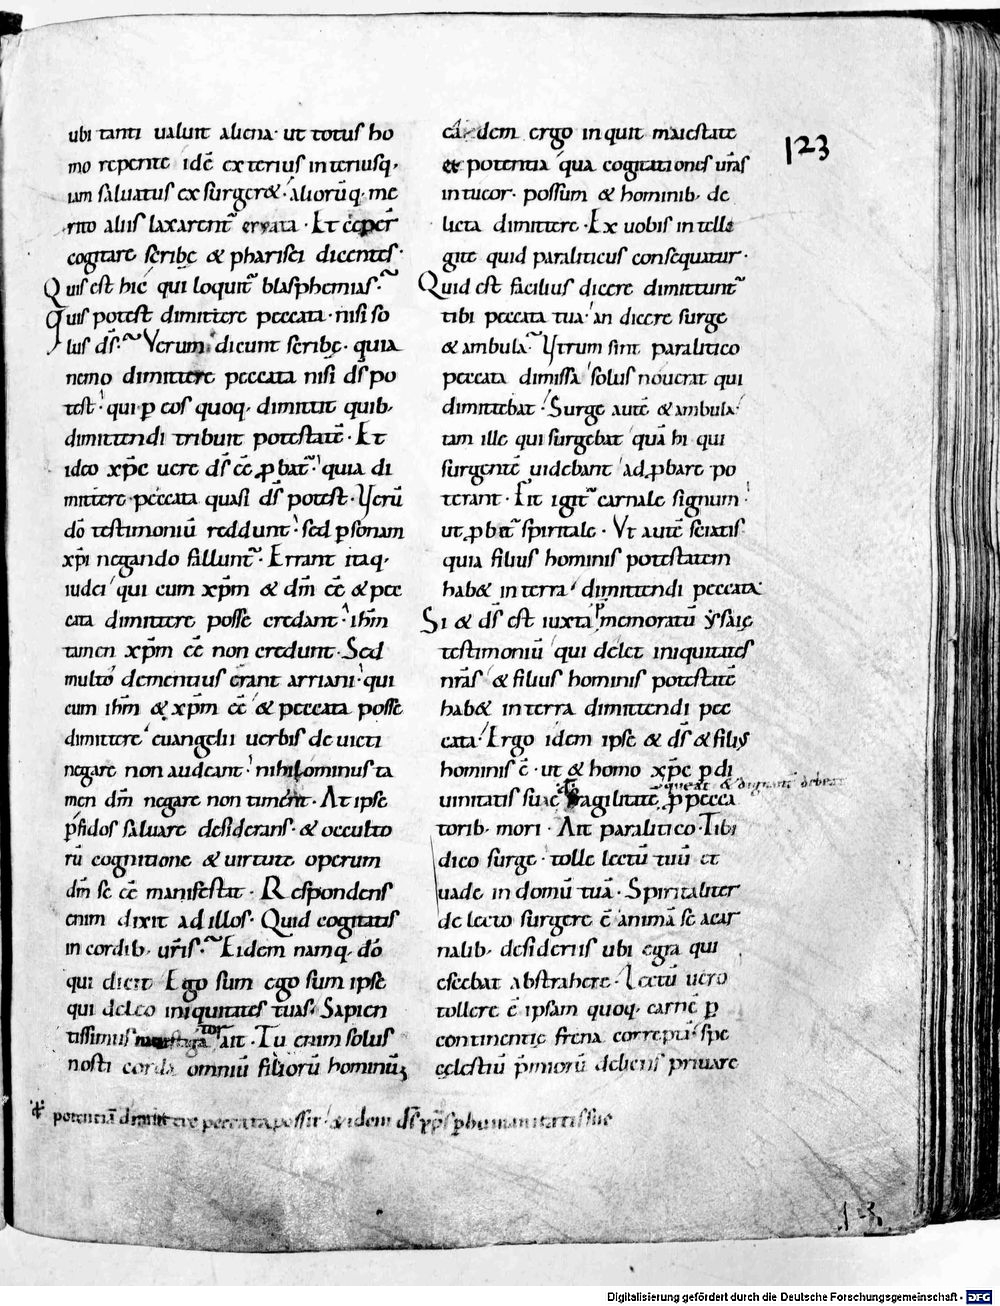 ubi tanti ualuit aliena· ut totus ho
mo repente idē exterius interiusq·
iam saluatus exsurger&· aliorūq· me
rito aliis laxarent᷑ errata· Et cęper̄
cogitare scribę & pharisei dicentes·
Quis est hic qui loquit᷑ blasphemias·
Quis potest dimittere peccata· nisi so
lus ds̄· Verum dicunt scribę· quia
nemo dimittere peccata nisi ds̄ po
test· qui ꝑ eos quoq· dimittit quib·
dimittendi tribuit potestatē· Et
ideo xp̄c uere ds̄ ēē ꝓbat᷑· quia di
mittere peccata quasi ds̄ potest· Verū
dō testimoniū reddunt· sed ꝑsonam
xp̄i negando fallunt᷑· Errant itaq·
iudei qui cum xp̄m & dm̄ ēē & pec
cata dimittere posse credant· ihm̄
tamen xp̄m ēē non credunt· Sed
multo dementius erant arriani· qui
cum ihm̄ & xp̄m ēē & peccata posse
dimittere euangelii uerbis deuicti
negare non audeant· nihilominus ta
men dm̄ negare non timent· At ipse
ꝑfidos saluare desiderans· & occulto
rū cognitione & uirtute operum
dm̄ se ēē manifestat· Respondens
enim dixit ad illos· Quid cogitatis
in cordib· ur̄is· Eidem namq· dō
qui dicit Ego sum ego sum ipse
qui deleo iniquitates tuas· Sapien
tissimus ait· Tu enim solus
nosti corda omniū filiorū hominū;
potentiā dimittere peccata possit· & idem ds̄ xp̄s ꝑ humanitatis sue
123
eādem ergo inquit maiestate
et potentia qua cogitationes ur̄as
intueor· possum & hominib· de
licta dimittere· Ex uobis intelli
gite quid paraliticus consequatur·
Quid est facilius dicere dimittunt᷑
tibi peccata tua· an dicere surge
& ambula· Utrum sint paralitico
peccata dimissa solus nouerat qui
dimittebat· Surge autē & ambula·
tam ille qui surgebat quā hi qui
surgentē uidebant adꝓbare po
terant· Fit igit᷑ carnale signum·
ut ꝓbet᷑ spiritale· Vt autē sciatis
quia filius hominis potestatem
hab& in terra dimittendi peccata·
Si & ds̄ est iuxta p̄memoratū ysaię
testimoniū qui delet iniquitates
nr̄as & filius hominis potestatē
hab& in terra dimittendi pec
cata· Ergo idem ipse & ds̄ & filius
hominis ē· ut & homo xp̄c ꝑ di
uinitatis suae
fragilitate ꝓ pecca
torib· mori· Ait paralitico· Tibi
dico surge· tolle lectū tuū et
uade in domū tuā· Spiritaliter
de lecto surgere ē animā se acar
nalib· desideriis ubi ęgra qui
escebat abstrahere· Lectū uero
tollere ē ipsam quoq· carnē ꝑ
continentię frena correptā· spe
cęlestiū p̄miorū deliciis priuare
Digitalisierung gefördert durch die Deutsche Forschungsgemeinschaft - DFG